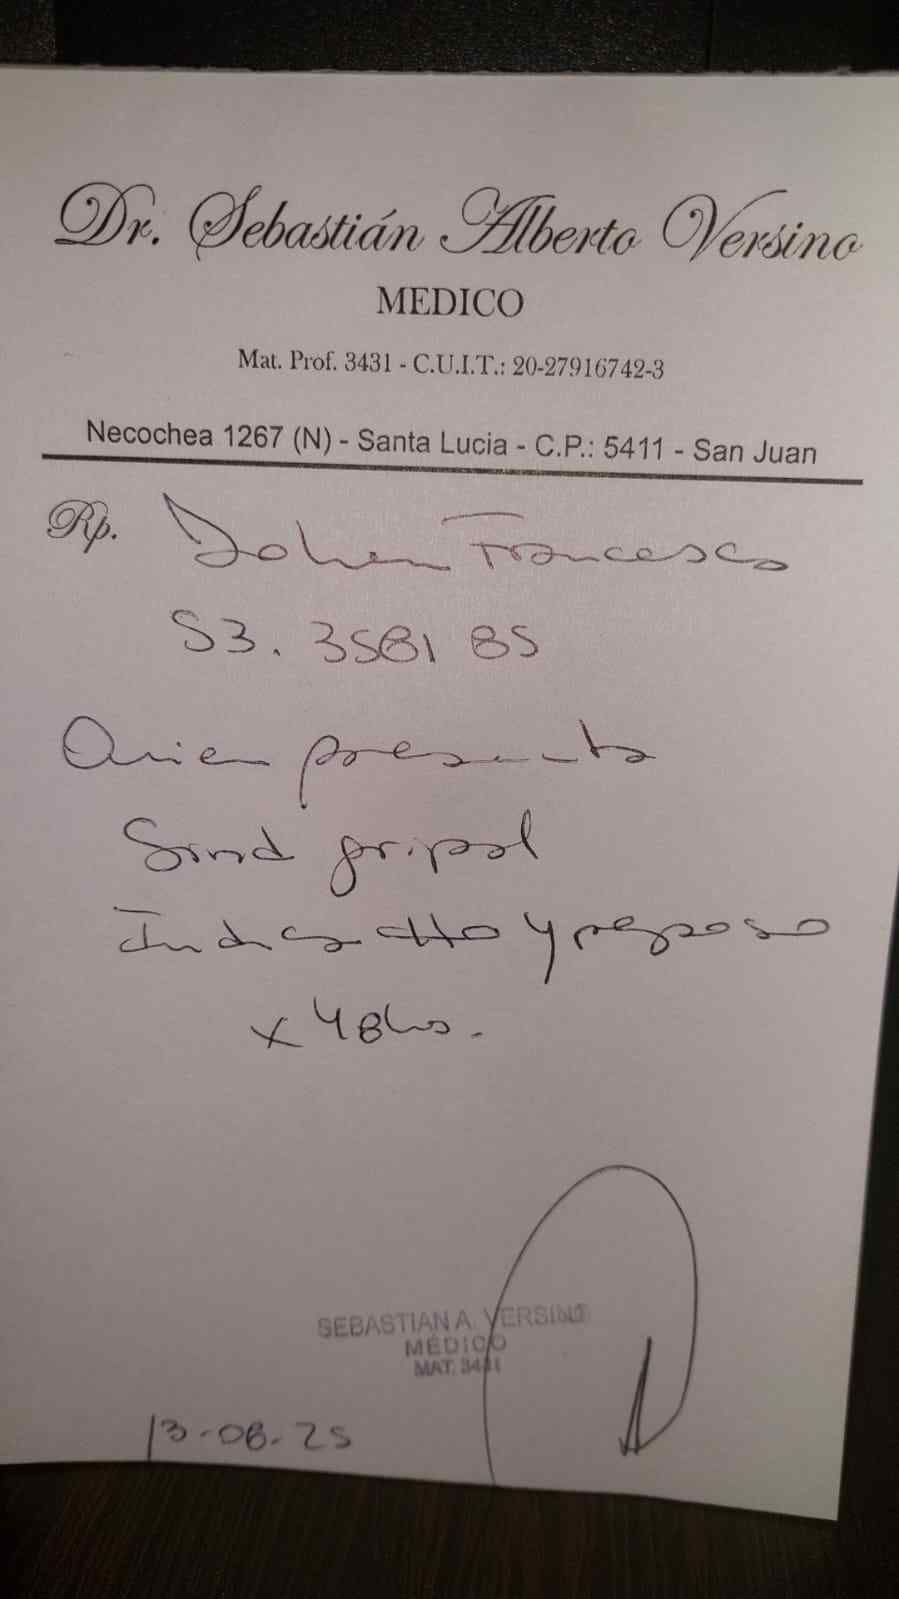 Dr. Sebastián Alberto Versino
MEDICO
Mat. Prof. 3431 - C.U.I.T.: 20-27916742-3
Necochea 1267 (N) - Santa Lucia - C.P.: 5411 - San Juan
Rp. Francesco
53.358185
Quien presenta
Sind gripal
Indico tto y reposo
x 48hs.
SEBASTIAN A. VERSINO
MÉDICO
MAT. 3431
13-08-25